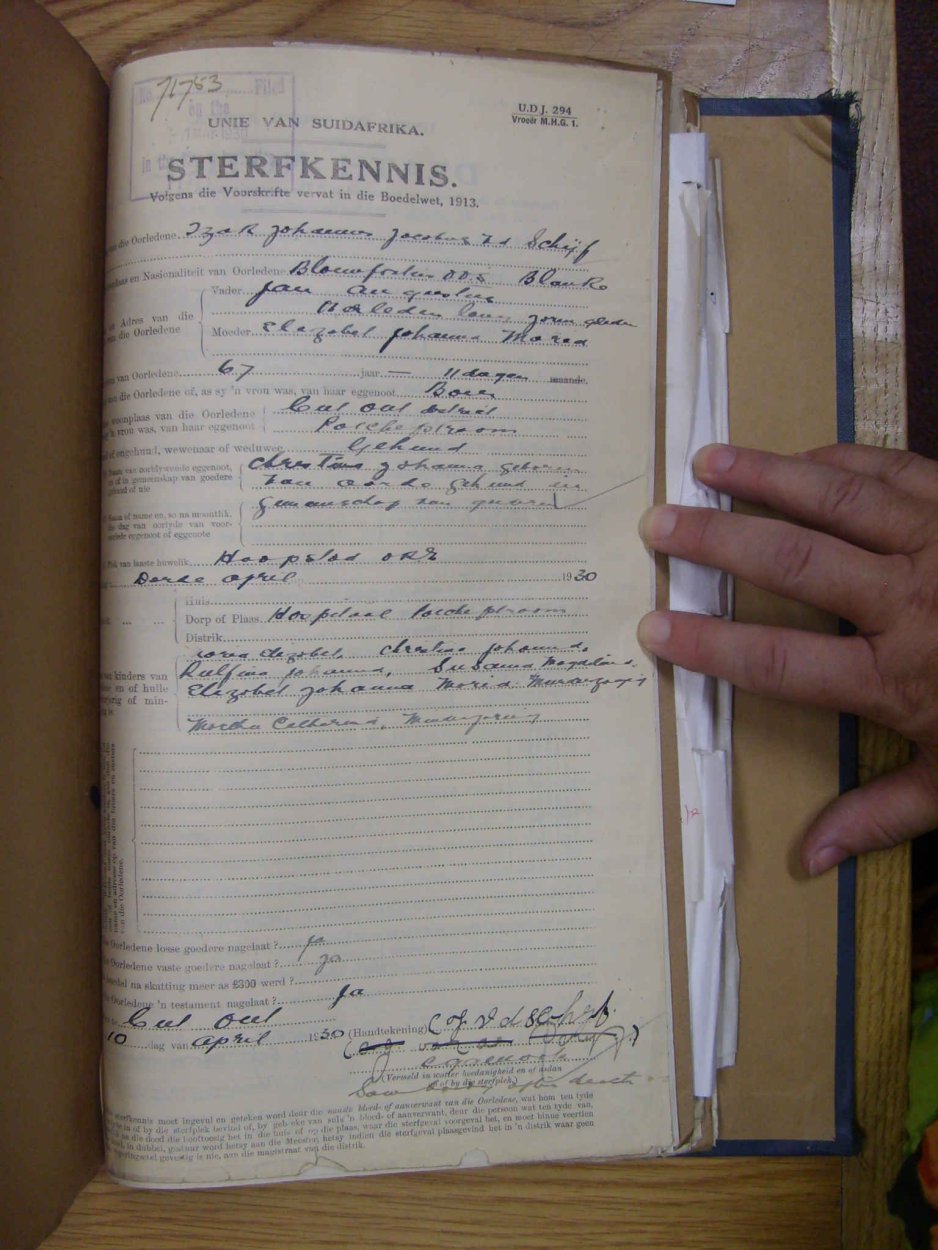 71783
No. Filed
on the
UNIE VAN SUIDAFRIKA.
U.D.J. 294
Vroeër M.H.G. 1.
STERFKENNIS.
Volgens die Voorskrifte vervat in die Boedelwet, 1913.
die Oorledene Izak Johannes Jacobus vd Schijf
en Nasionaliteit van Oorledene Bloemfontein OVS Blanke
Vader Jan Augustus
Adres van die
die Oorledene
Oorleden lang jaren gleden
Moeder Elizabet Johanna Maria
van Oorledene 67 jaar — 11 dagen maande.
die Oorledene of, as sy 'n vrou was, van haar eggenoot Boer
woonplaas van die Oorledene
vrou was, van haar eggenoot
Cul Out Distrik
Potchefstroom
of ongehuud, wewenaar of weduwee Gehuud
Naam van oorblywende eggenoot,
en of in gemeenskap van goedere
gehuud of nie
Christina Johanna geboren
van aarde gehuud in
gemeenschap van goederen
Naam of name en, so na moontlik,
die dag van oorlyde van voor-
oorlede eggenoot of eggenote
Plek van laaste huwelik Hoopstad OVS
Derde April 1930
Huis
Dorp of Plaas Hospitaal Potchefstroom
Distrik
Elizabet Christina Johanna
kinders van
en of hulle
of min-
Rulfina Johanna, Susanna Magdalena
Elizabet Johanna Maria Minderjarig
Martha Catherina, Minderjarig
name en adresse op van die
van die Oorledene.
die Oorledene losse goedere nagelaat ? ja
Oorledene vaste goedere nagelaat ? ja
boedel na skatting meer as £300 werd ?
Oorledene 'n testament nagelaat ? Ja
Cul Out
10 dag van April 1930 (Handtekening) C J v d Schijf
(Vermeld in watter hoedanigheid en of aldan
of by die sterfplek.)
Saw body after death
sterfkennis moet ingevul en geteken word deur die naaste bloed- of aanverwant van die Oorledene, wat hom ten tyde
in of by die sterfplek bevind of, by gebreke van sulk 'n bloed- of aanverwant, deur die persoon wat ten tyde van
die dood die hooftoesig het in die huis of op die plaas, waar die sterfgeval voorgeval het, en moet binne veertien
in dubbel, gestuur word hetsy aan die Meester, hetsy indien die sterfgeval plaasgevind het in 'n distrik waar geen
gevestig is nie, aan die magistraat van die distrik.